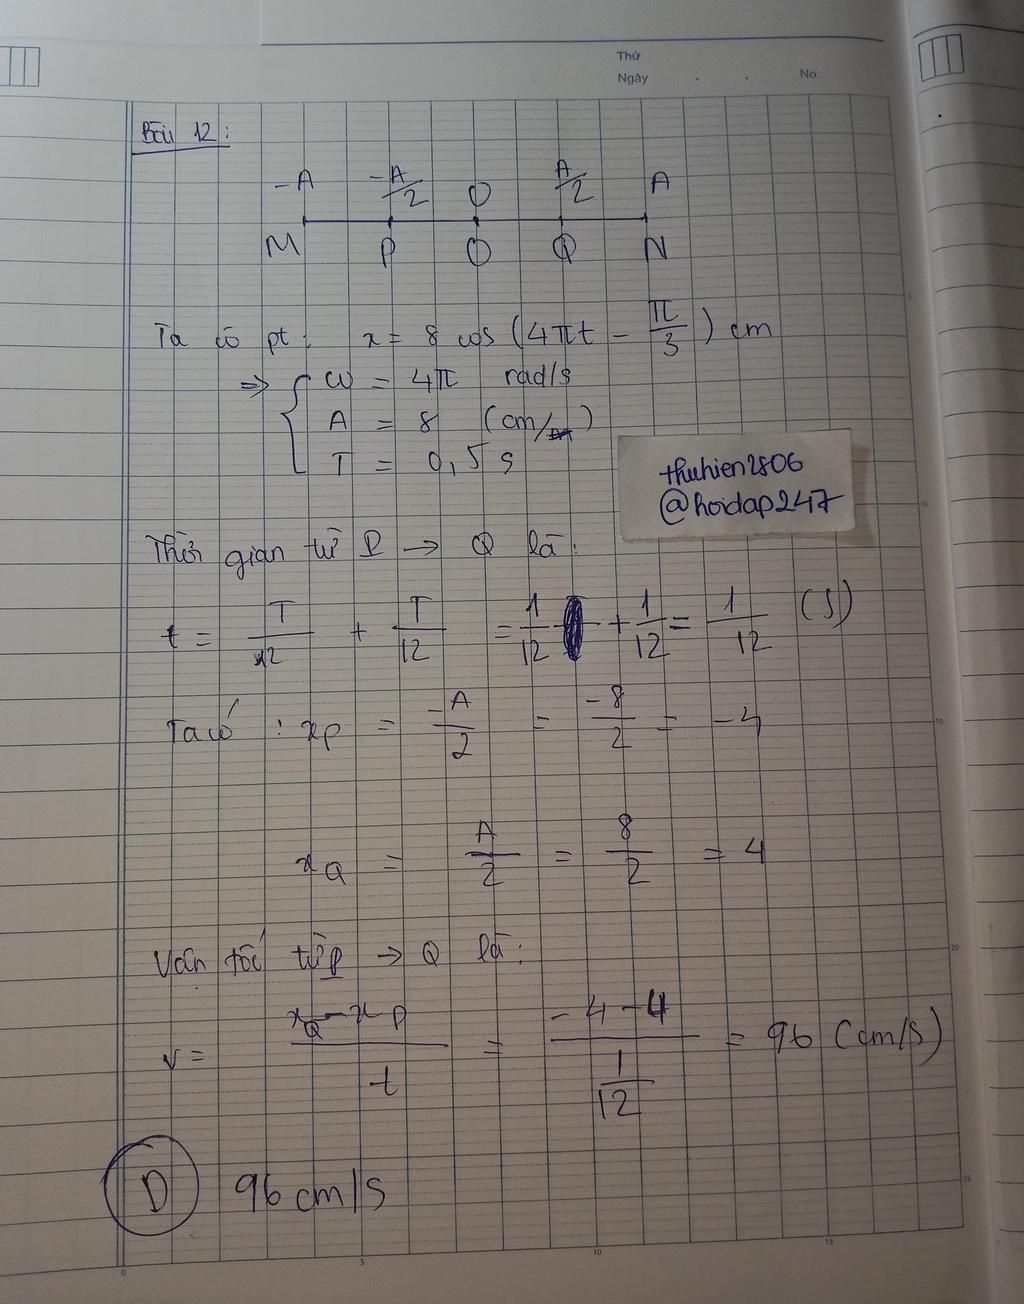 Thứ
Ngày . . No.
Bài 12:
-A -A/2 O A/2 A
M P O Q N
Ta có pt: x = 8 cos (4πt - π/3) cm
=> { ω = 4π rad/s
A = 8 (cm/)
T = 0,5 s
thuhien2806
@hoidap247
Thời gian từ P → Q là:
t = T/12 + T/12 = 1/12 + 1/12 = 1/12 (s)
Ta có: xP = -A/2 = -8/2 = -4
xQ = A/2 = 8/2 = 4
Vận tốc từ P → Q là:
v = xQ - xP / t = -4-4 / 1/12 = 96 (cm/s)
D 96 cm/s
5
10
15
20
25
0 5 10 15